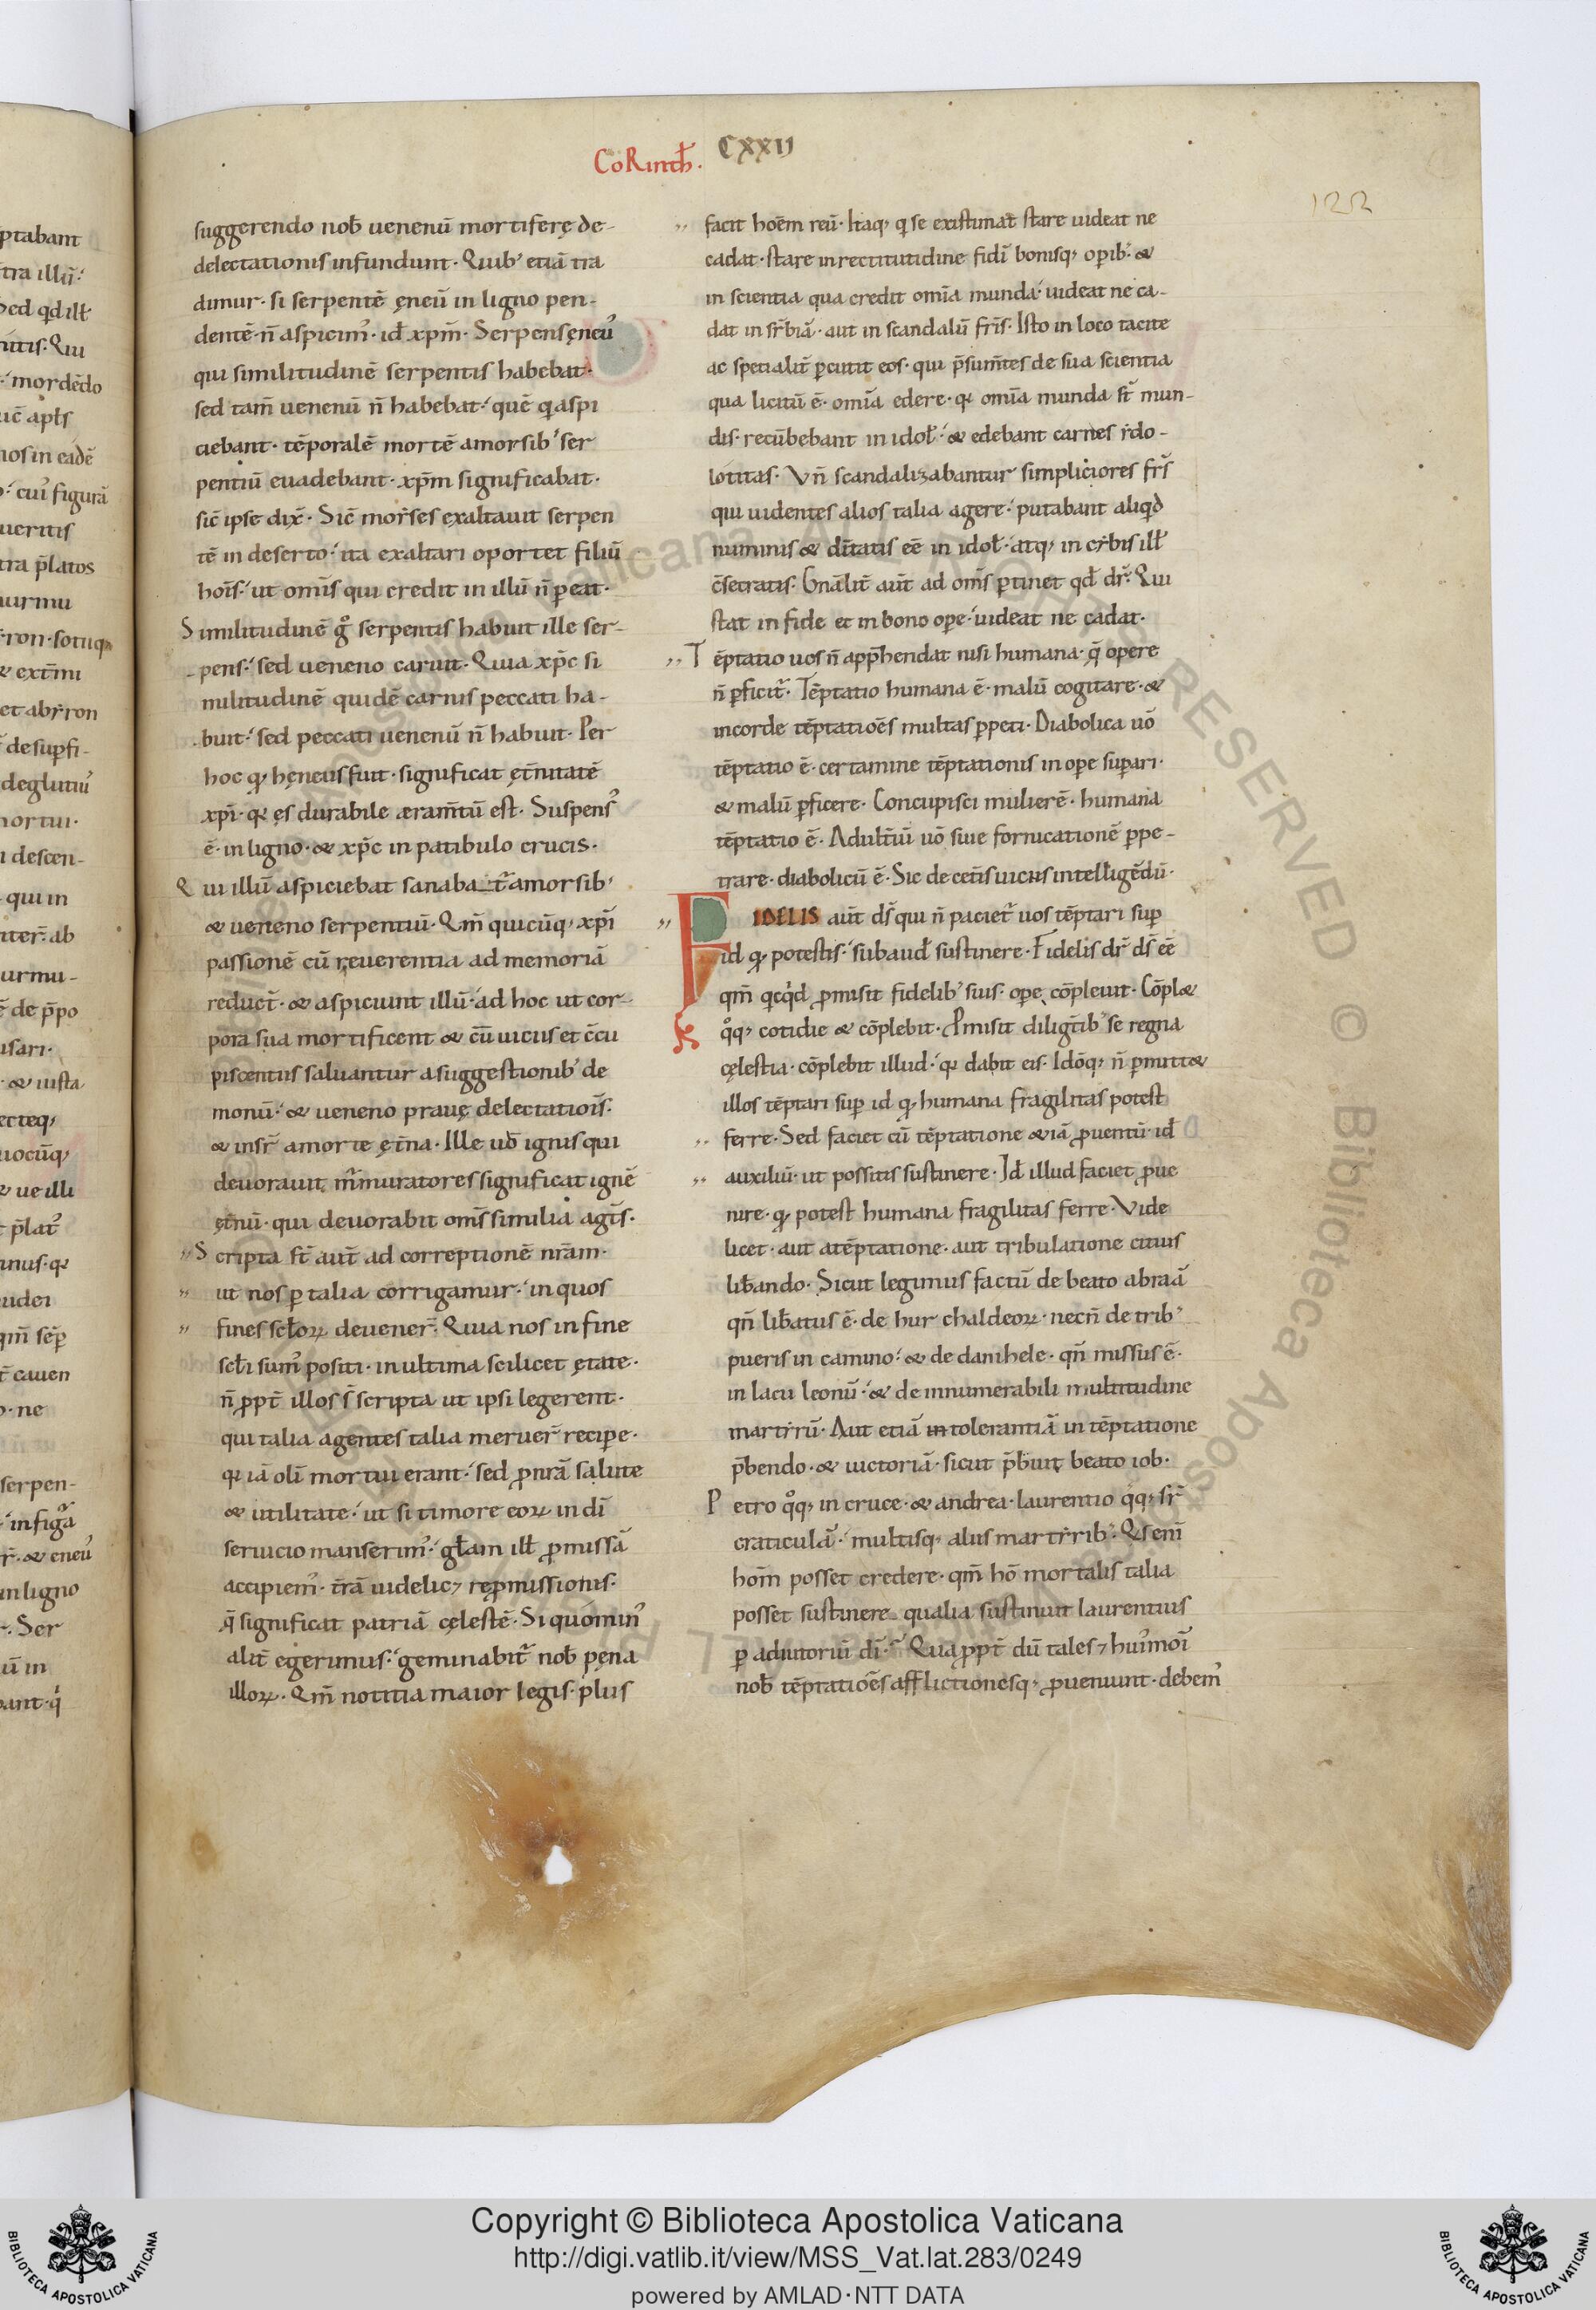 CoRinth̄. CXXII
122
suggerendo nob̄ uenenū mortiferę de-
delectationis infundunt. Quib' etiā tra
dimur. si serpentē ęneū in ligno pen-
dentē. n̄ aspicim'. id̄ xp̄m. Serpens ęneu'
qui similitudinē serpentis habebat.
sed tam̄ uenenū n̄ habebat. quē q aspi
ciebant. tēporalē mortē a morsib' ser
pentiū euadebant. xp̄m significabat.
sic̄ ipse dix̄. Sic̄ moyses exaltauit serpen
tē in deserto. ita exaltari oportet filiū
hoīs. ut omīs qui credit in illū n̄ peat.
Similitudinē g° serpentis habuit ille ser-
pens. sed ueneno caruit. Quia xp̄c si
militudinē quidē carnis peccati ha-
buit. sed peccati uenenū n̄ habuit. Per
hoc qđ hęneus fuit. significat ęt̄nitatē
xp̄i. qr ęs durabile æram̄tū est. Suspens'
ē. in ligno. & xp̄c in patibulo crucis.
Qui illū aspiciebat sanabat̄ a morsib'
& ueneno serpentiū. Qm̄ quicūq; xp̄i
passionē cū reuerentia ad memoriā
reduct̄. & aspiciunt illū. ad hoc ut cor-
pora sua mortificent & cū uiciis et c̄cu
piscentiis saluantur a suggestionib' de
monū. & ueneno prauę delectatiois̄.
& insr̄ a morte ęt̄na. Ille uō ignis qui
deuorauit m̄muratores significat ignē
ęt̄nū. qui deuorabit om̄s similia agt̄s.
Scripta st̄ aut̄ ad correptionē nr̄am.
ut nos p talia corrigamur. in quos
fines sc̄lorꝝ deuener̄. Quia nos in fine
sc̄li sum' positi. in ultima scilicet ętate.
n̄ ppt̄ illos s̄ scripta ut ipsi legerent.
qui talia agentes talia meruer̄ recipe.
qr iā olī mortui erant. sed p nr̄ā salute
& utilitate. ut si timore eorꝝ in dī
seruicio manserim'. gl̄am ill̄ pmissā
accipiem'. t̄rā uidelic; repmissionis.
q̄ significat patriā cęlestē. Si quomin'
alit̄ egerimus. geminabit̄ nob̄ pęna
illorꝝ. Qm̄ notitia maior legis. plus
facit hoēm reū. Itaq; q se existimat stare uideat ne
cadat. stare in rectitutidine fidī bonisq; opib'. &
in scientia qua credit omīa munda. uideat ne ca-
dat in suꝑbiā. aut in scandalū fr̄is. Isto in loco tacite
ac specialit̄ pcutit eos. qui p̄sum̄tes de sua scientia
qua licitū ē. omīa edere. qr omīa munda st̄ mun-
dis. recūbebant in idol̄. & edebant carnes ydo-
lotitas. Vn̄ scandalizabantur simpliciores fr̄s
qui uidentes alios talia agere. putabant aliqđ
numinis & dītatis eē in idol̄. atq; in cybis ill̄
c̄secratis. Gnālit̄ aut̄ ad om̄s ptinet qđ dr̄. Qui
stat in fide et in bono ope. uideat ne cadat.
Tēptatio uos n̄ app̄hendat nisi humana. q̄ opere
n̄ pficit̄. Tēptatio humana ē. malū cogitare. &
in corde tēptatioēs multas ppeti. Diabolica uō
tēptatio ē. certamine tēptationis in ope supari.
& malū pficere. Concupisci mulierē. humana
tēptatio ē. Adult̄iū uō siue fornicationē ppe-
trare. diabolicū ē. Sic de cet̄is uiciis intelligēdū.
FIDELIS aut̄ ds̄ qui n̄ paciet̄ uos tēptari sup
id qđ potestis. subaud̄ sustinere. Fidelis dr̄ ds̄ eē
qm̄ qcqd pmisit fidelib' suis. ope cōpleuit. Cōpl&
q°q; cotidie & cōplebit. Pmisit diligt̄ib' se regna
cęlestia. cōplebit illud. qr dabit eis. Idōq; n̄ pmitt&
illos tēptari sup id qđ humana fragilitas potest
ferre. Sed faciet cū tēptatione &iā puentū. id̄
auxiliū. ut possitis sustinere. Id̄ illud faciet pue
nire. qđ potest humana fragilitas ferre. Vide
licet. aut a tēptatione. aut tribulatione citius
lib̄ando. Sicut legimus factū de beato abraā
qn̄ lib̄atus ē. de hur chaldeorꝝ. necn̄ de trib'
pueris in camino. & de danihele. qn̄ missus ē.
in lacu leonū. & de innumerabili multitudine
martyrū. Aut etiā in tolerantiā in tēptatione
p̄bendo. & uictoriā. sicut p̄buit beato iob.
Petro q°q; in cruce. & andrea. laurentio q°q; sr̄
craticulā. multisq; aliis martyrib'. Qs eni
hom̄ posset credere. qm̄ hō mortalis talia
posset sustinere qualia sustinuit laurentius
p adiutoriū dī. Qua ppt̄ dū tales 7 hui'moī
nob̄ tēptatioēs afflictionesq; pueniunt. debem'
Copyright © Biblioteca Apostolica Vaticana
http://digi.vatlib.it/view/MSS_Vat.lat.283/0249
powered by AMLAD·NTT DATA
BIBLIOTECA APOSTOLICA VATICANA
BIBLIOTECA APOSTOLICA VATICANA